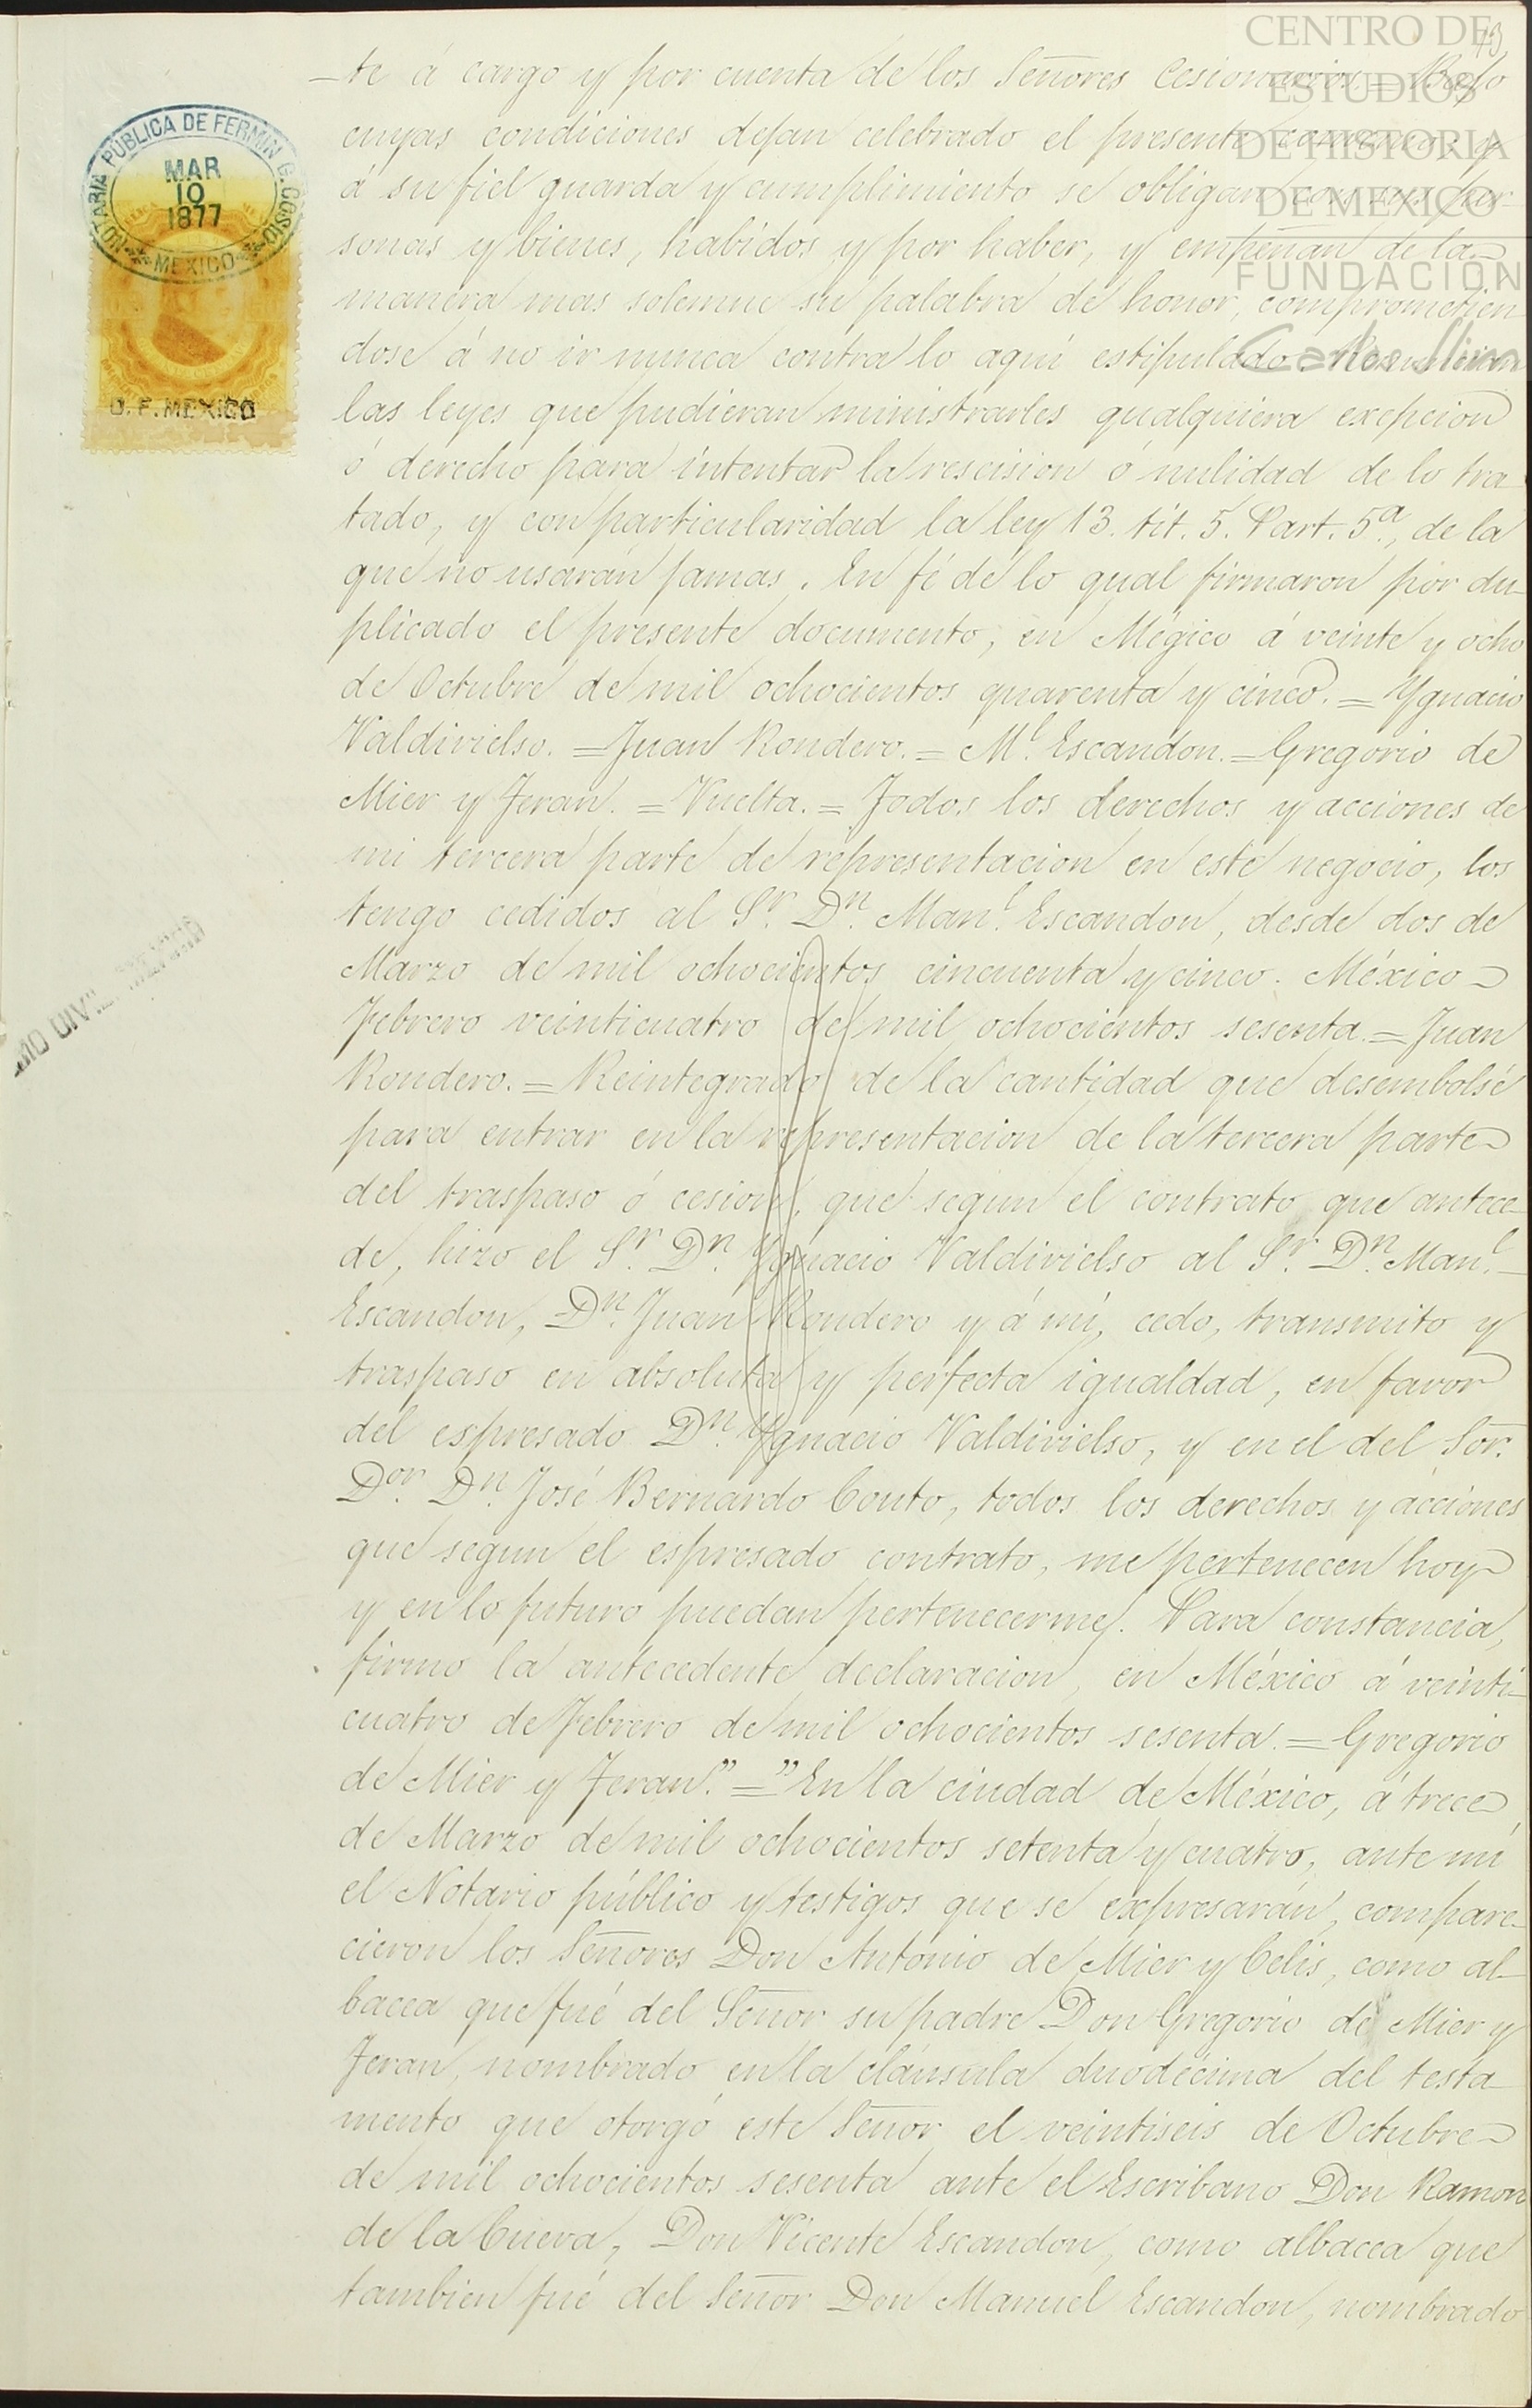 CENTRO DE
ESTUDIOS
DE HISTORIA
DE MEXICO
FUNDACIÓN
Carlos Slim
NOTARIA PUBLICA DE FERMIN G. COSIO
MAR
10
1877
MEXICO
D. F. MEXICO
-te á cargo y por cuenta de los Señores Cesionarios. = Bajo
cuyas condiciones dejan celebrado el presente convenio; y
á su fiel guarda y cumplimiento se obligan con sus per-
sonas y bienes, habidos y por haber, y empeñan de la
manera mas solemne su palabra de honor, comprometien
dose á no ir nunca contra lo aquí estipulado. Renuncian
las leyes que pudieran ministrarles qualquiera exepcion
ó derecho para intentar la rescision ó nulidad de lo tra
tado, y con particularidad la ley 13. tít. 5. Part. 5ª, de la
que no usarán jamas. En fé de lo qual firmaron por du-
plicado el presente documento, en Mégico á veinte y ocho
de Octubre de mil ochocientos quarenta y cinco. = Ygnacio
Valdivielso. = Juan Rondero. = Ml. Escandon. = Gregorio de
Mier y Teran. = Vuelta. = Todos los derechos y acciones de
mi tercera parte de representacion en este negocio, los
tengo cedidos al Sr. Dn. Manl. Escandon, desde dos de
Marzo de mil ochocientos cincuenta y cinco. México
Febrero veinticuatro de mil ochocientos sesenta. = Juan
Rondero. = Reintegrado de la cantidad que desembolsé
para entrar en la representacion de la tercera parte
del traspaso ó cesion, que segun el contrato que antece-
de, hizo el Sr. Dn. Ygnacio Valdivielso al Sr. Dn. Manl.
Escandon, Dn. Juan Rondero y á mí, cedo, transmito y
traspaso en absoluta y perfecta igualdad, en favor
del espresado Dn. Ygnacio Valdivielso, y en el del Sor.
Dor. Dn. José Bernardo Couto, todos los derechos y acciones
que segun el espresado contrato, me pertenecen hoy
y en lo futuro puedan pertenecerme. Para constancia,
firmo la antecedente declaracion, en México á veinti-
cuatro de Febrero de mil ochocientos sesenta. = Gregorio
de Mier y Teran." = "En la ciudad de México, á trece
de Marzo de mil ochocientos setenta y cuatro, ante mí
el Notario público y testigos que se expresarán, compare-
cieron los Señores Don Antonio de Mier y Celis, como al-
bacea que fué del Señor su padre Don Gregorio de Mier y
Teran, nombrado en la cláusula duodécima del testa-
mento que otorgó este Señor el veintiseis de Octubre
de mil ochocientos sesenta ante el Escribano Don Ramon
de la Cueva, Don Vicente Escandon, como albacea que
tambien fué del Señor Don Manuel Escandon, nombrado